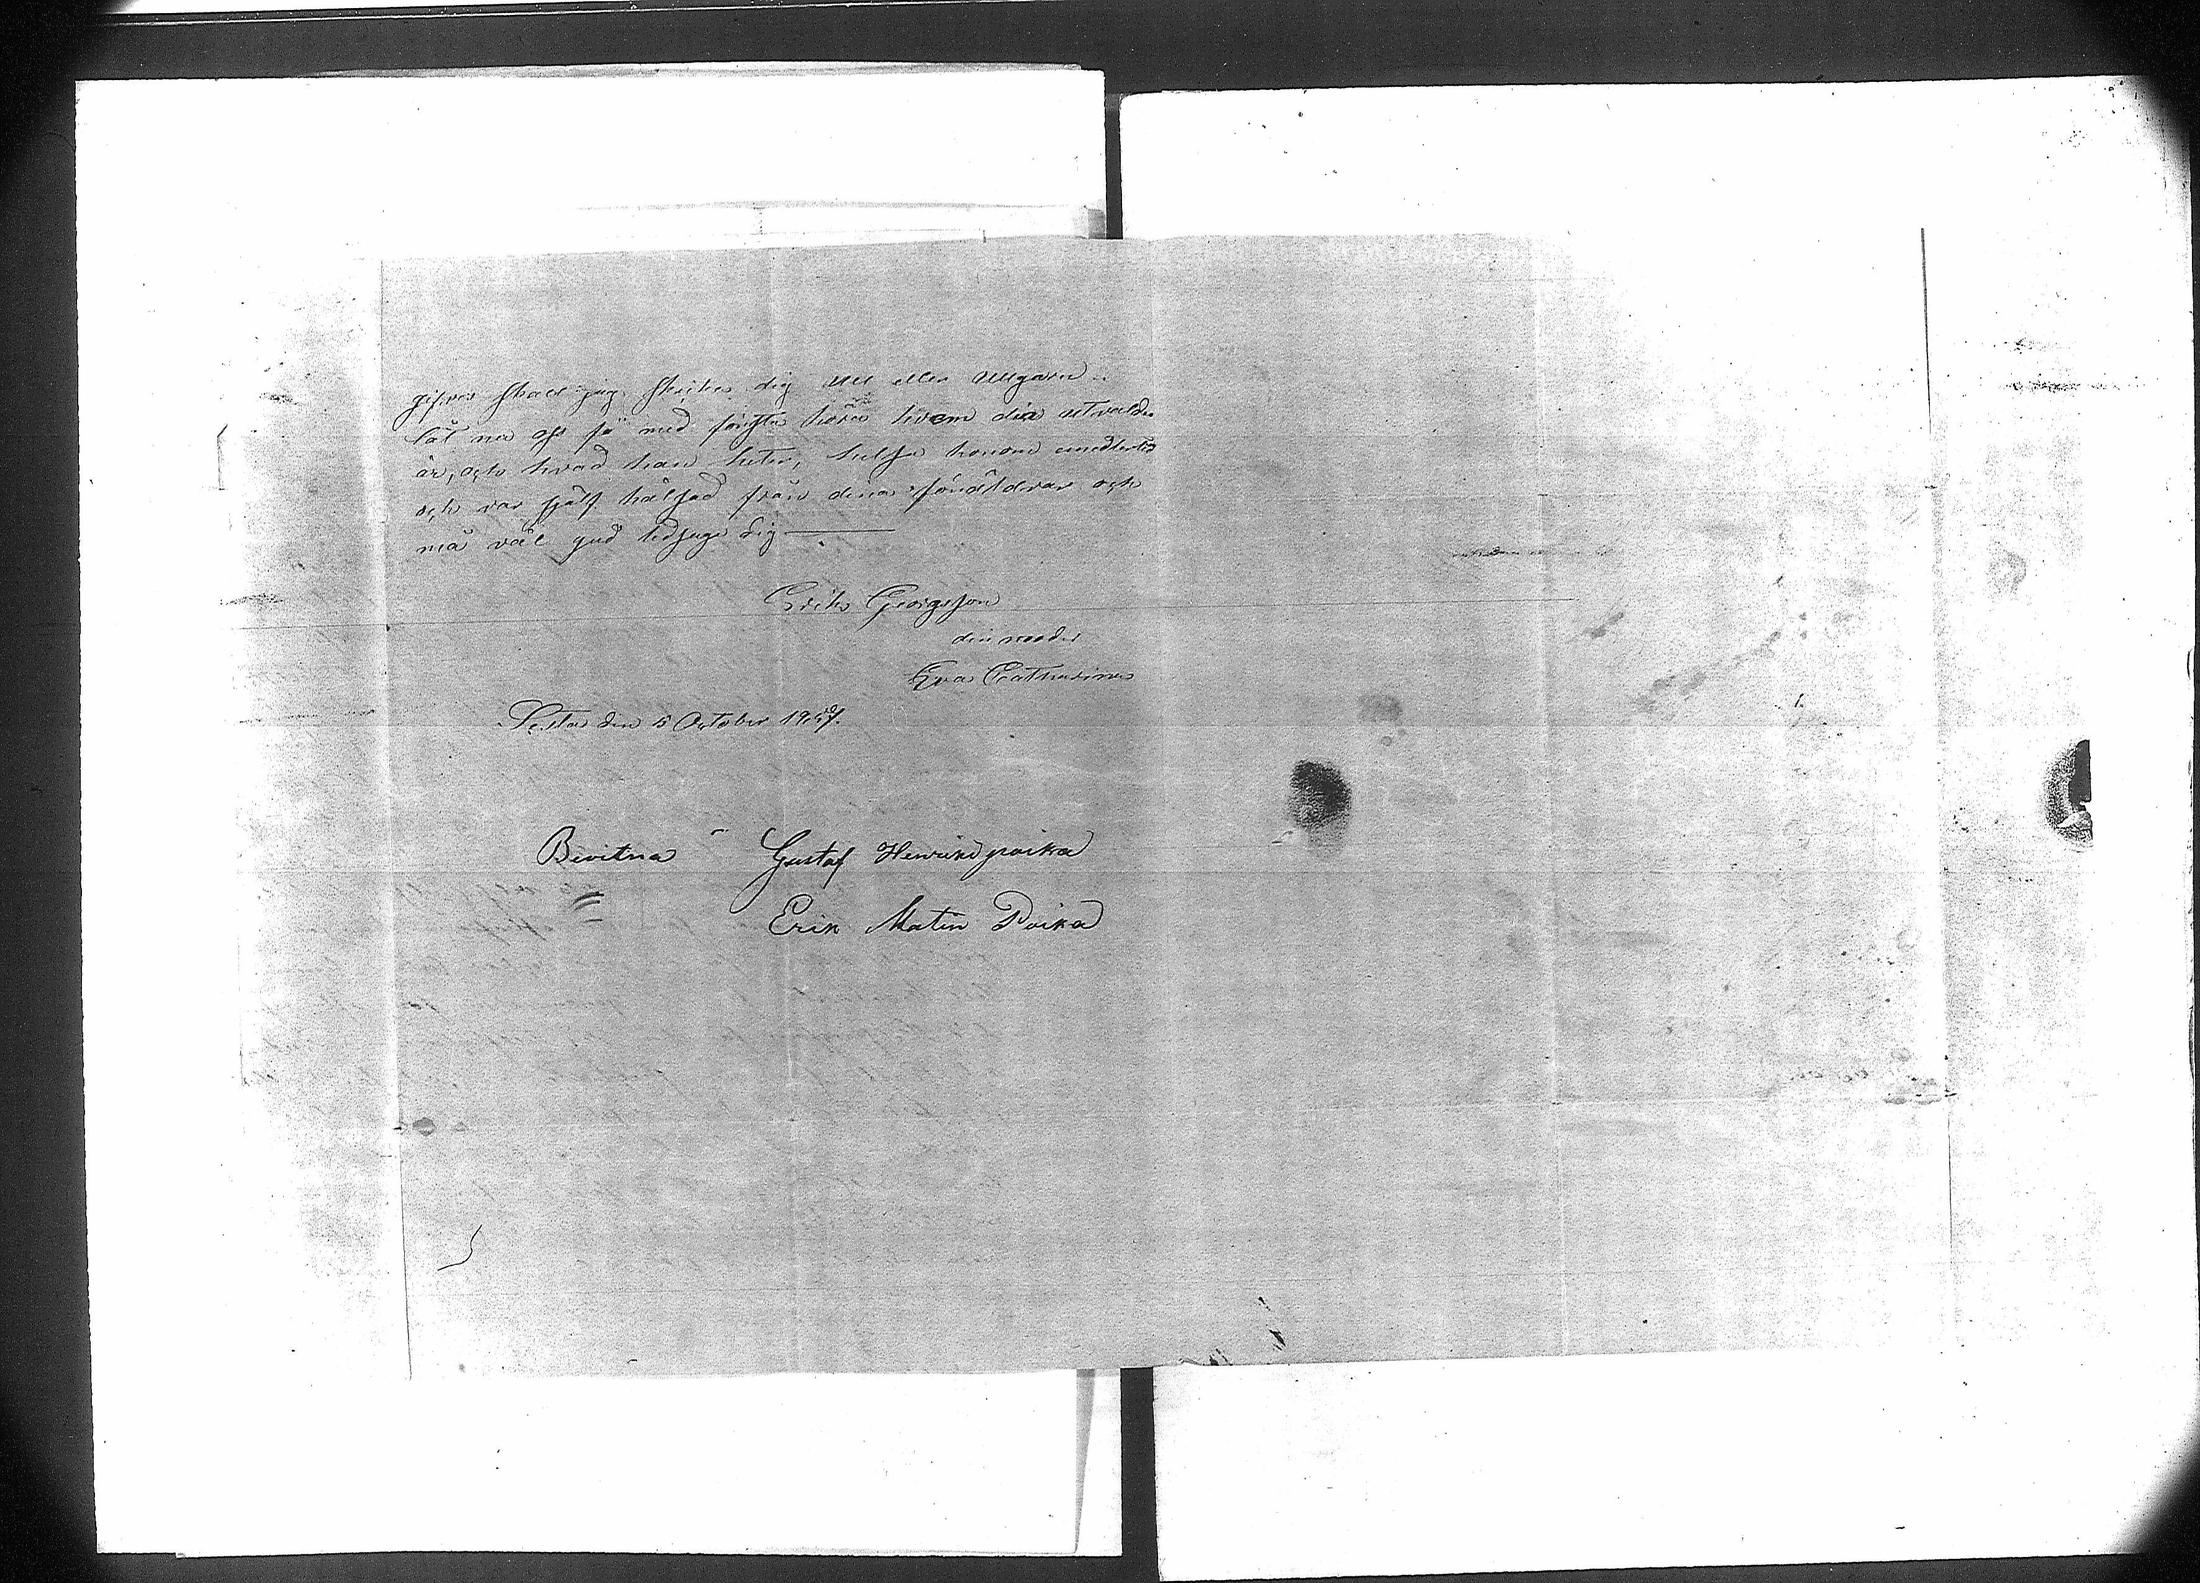 gifves skall jag skicka dig ull eller ullgarn
låt nu oss få med första höra hvem din utvalda
är, och hvad han heter, helsa honom emedlertid
och var sjelf hälsad från dina föräldrar och
må väl gud ledsage dig
Erik Georgsson
din moder
Eva Catharina
den 5 October
Bevitna Gustaf Henrikspoika
Erik Matin Poika